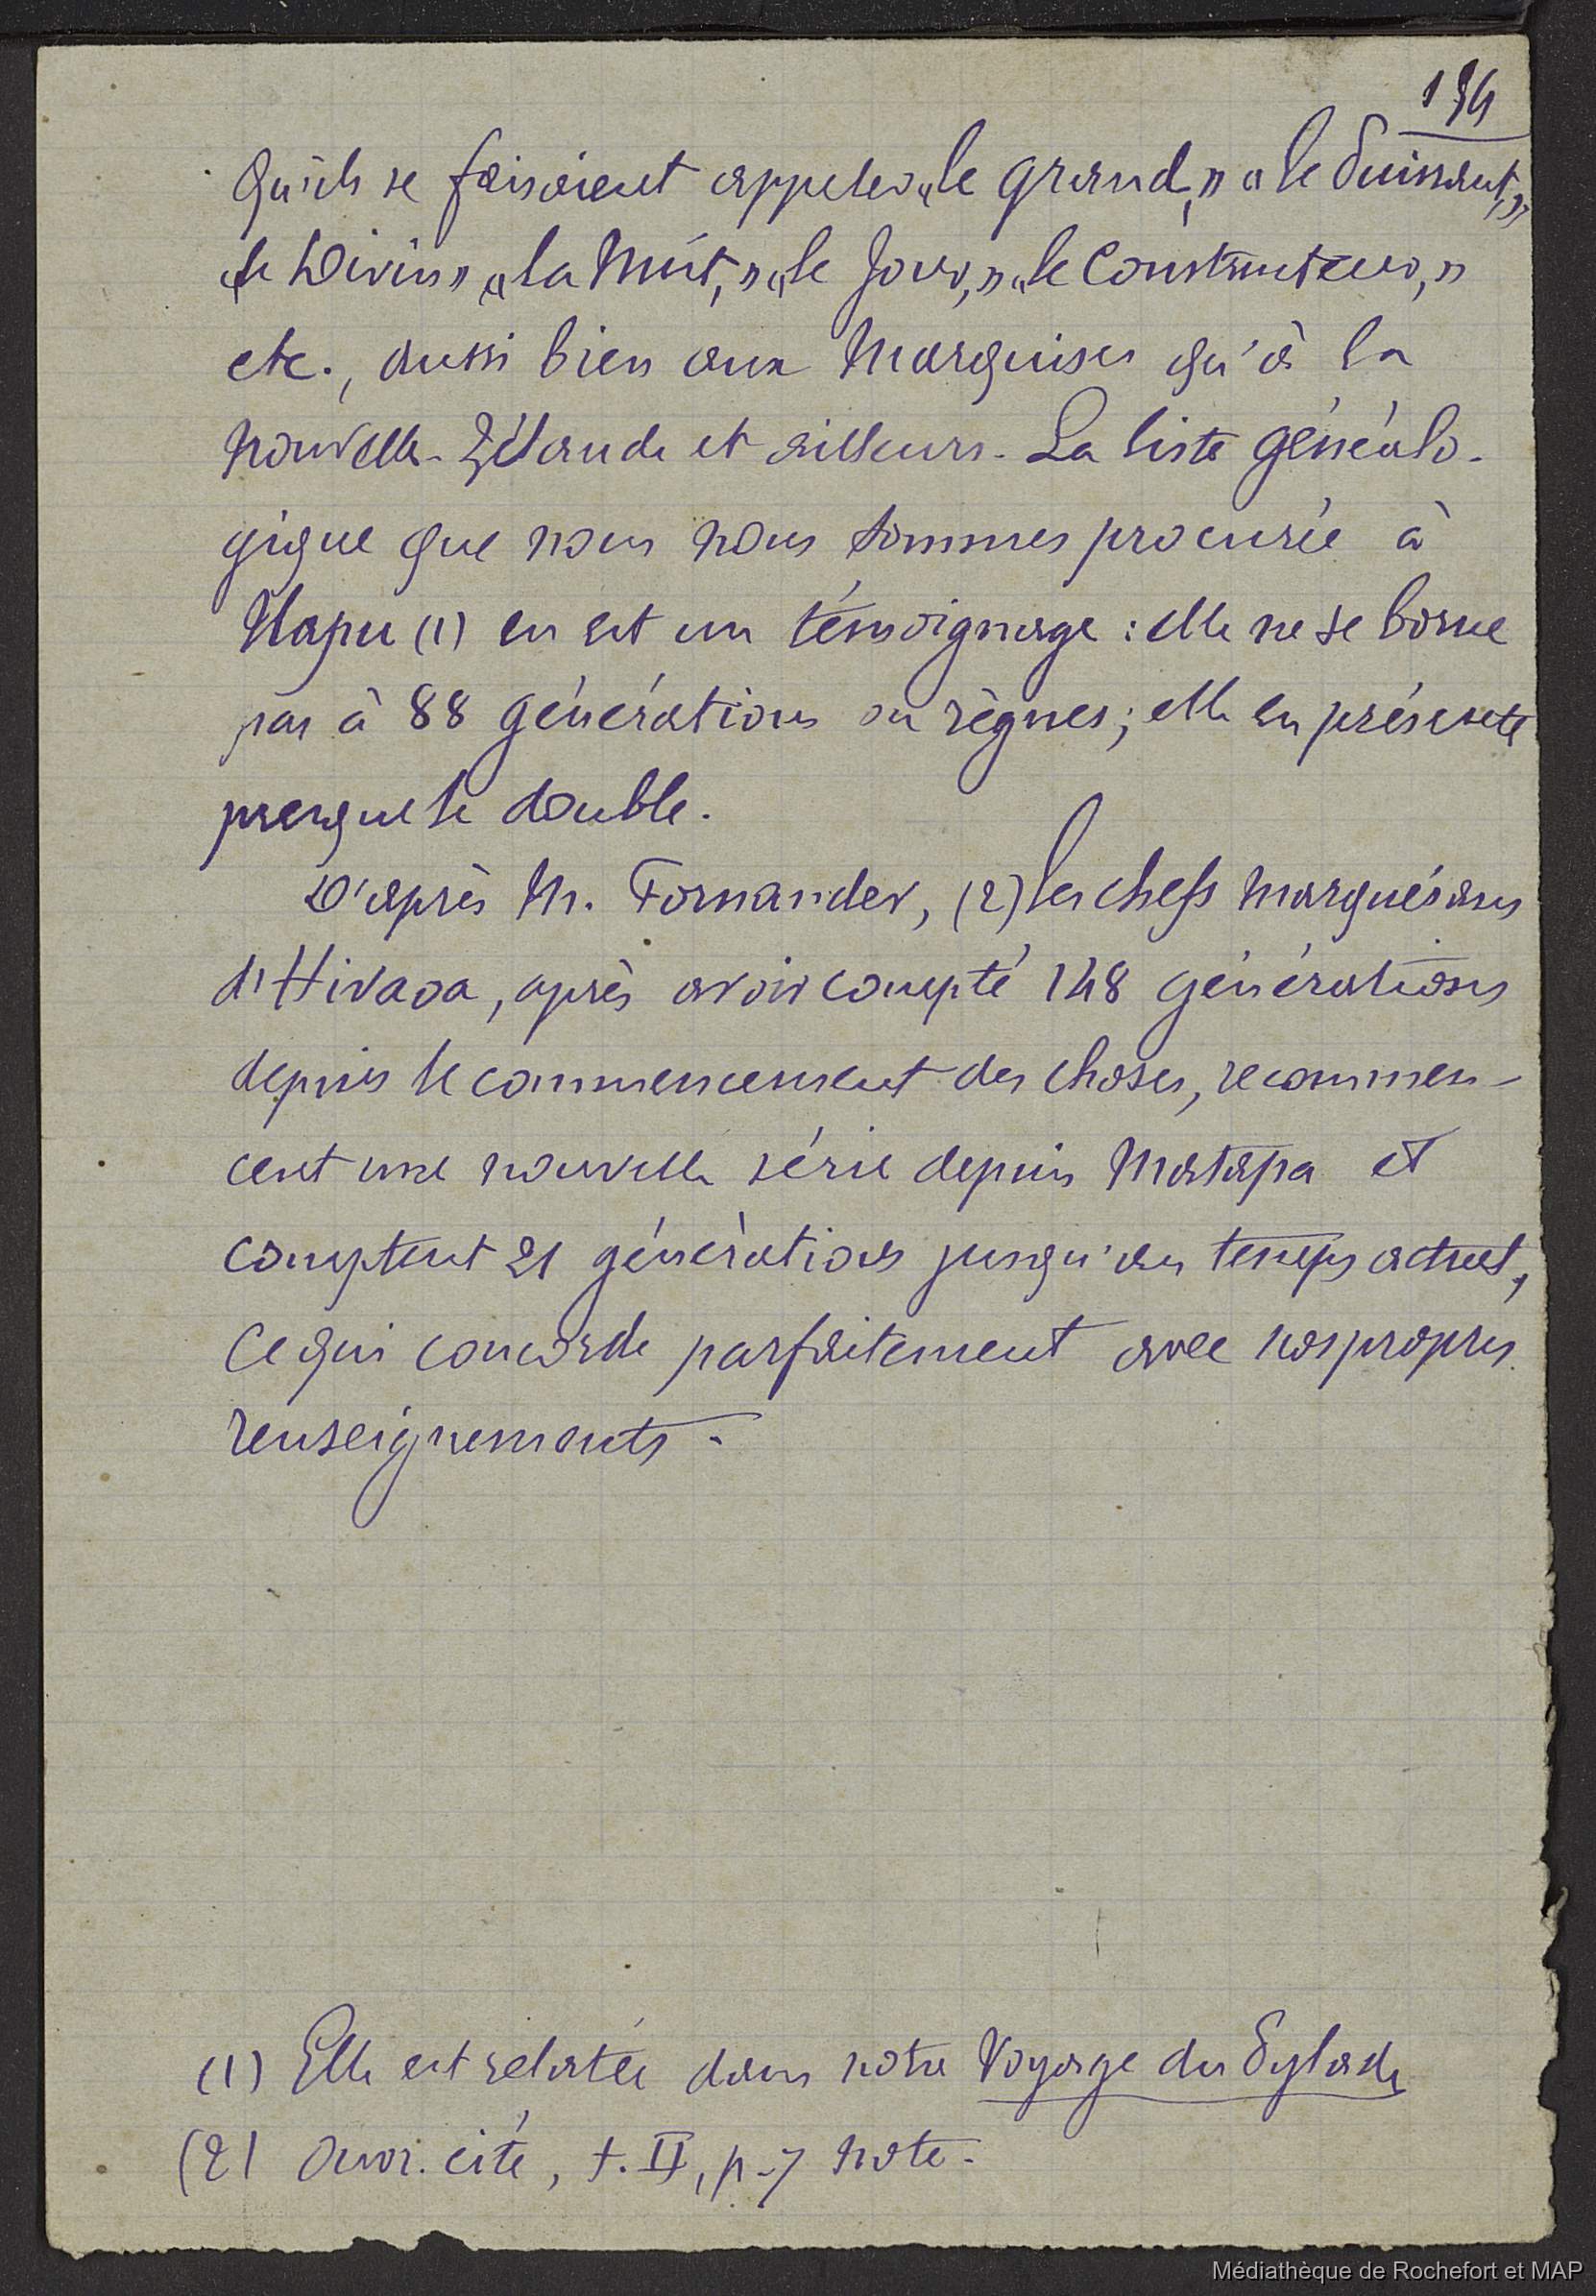 134
qu'ils se faisaient appeler « le grand, » « le Puissant, »
« le Divin » « la Nuit, » « le Jour, » « le Constructeur, »
etc., aussi bien aux Marquises qu'à la
Nouvelle-Zélande et ailleurs. La liste généalo-
gique que nous nous sommes procurée à
Uapu (1) en est un témoignage : elle ne se borne
pas à 88 générations ou règnes ; elle en présente
presque le double.
D'après M. Fornander, (2) les chefs marquésans
d'Hivaoa, après avoir compté 148 générations
depuis le commencement des choses, recommen-
cent une nouvelle série depuis Matapa et
comptent 21 générations jusqu'au temps actuel,
ce qui concorde parfaitement avec nos propres
renseignements.
(1) Elle est relatée dans notre Voyage du Pylade
(2) Ouvr. cité, t. II, p. 7 note.
Médiathèque de Rochefort et MAP